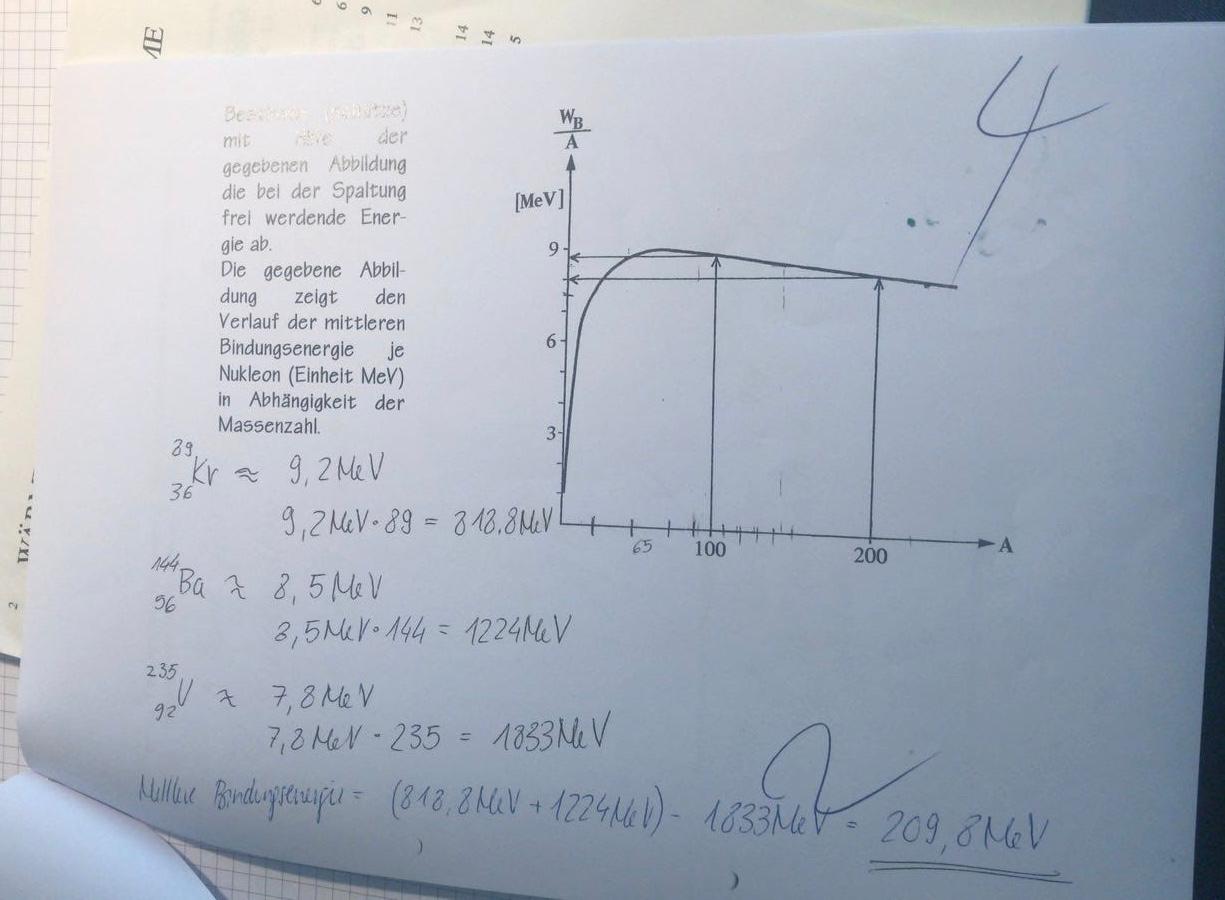 ÄE
6
6
9
11
13
14
14
5
4
mit der
gegebenen Abbildung
die bei der Spaltung
frei werdende Ener-
gie ab.
Die gegebene Abbil-
dung zeigt den
Verlauf der mittleren
Bindungsenergie je
Nukleon (Einheit MeV)
in Abhängigkeit der
Massenzahl.
W_B
A
[MeV]
9
6
3
65
100
200
A
89
36 Kr ≈ 9,2 MeV
9,2 MeV · 89 = 818.8 MeV
144
56 Ba ≈ 8,5 MeV
8,5 MeV · 144 = 1224 MeV
235
92 U ≈ 7,8 MeV
7,8 MeV · 235 = 1833 MeV
Mittlere Bindungsenergie = (818,8 MeV + 1224 MeV) - 1833 MeV = 209,8 MeV
2